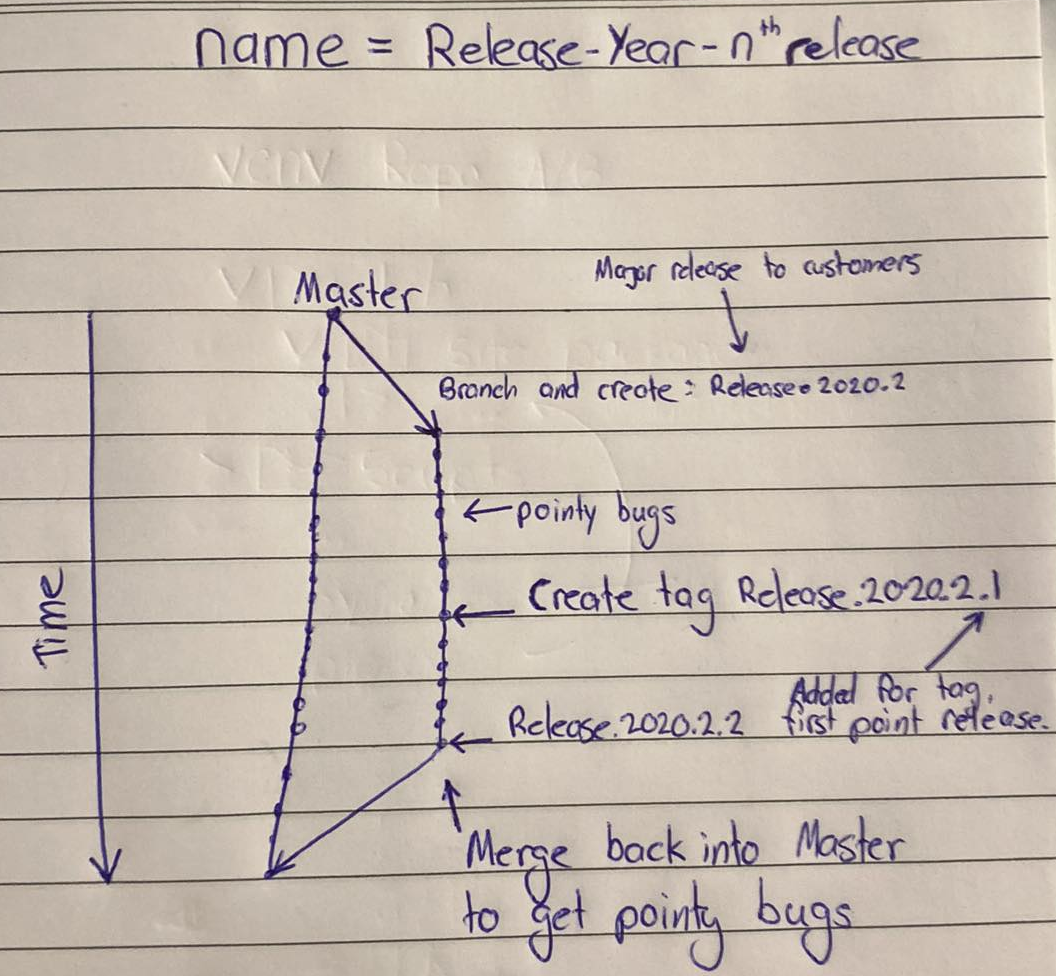 name = Release-Year-nth release
Master
Major release to customers
Branch and create: Release.2020.2
←pointy bugs
Create tag Release.2020.2.1
Time
Added for tag,
first point release.
Release.2020.2.2
Merge back into Master
to get pointy bugs